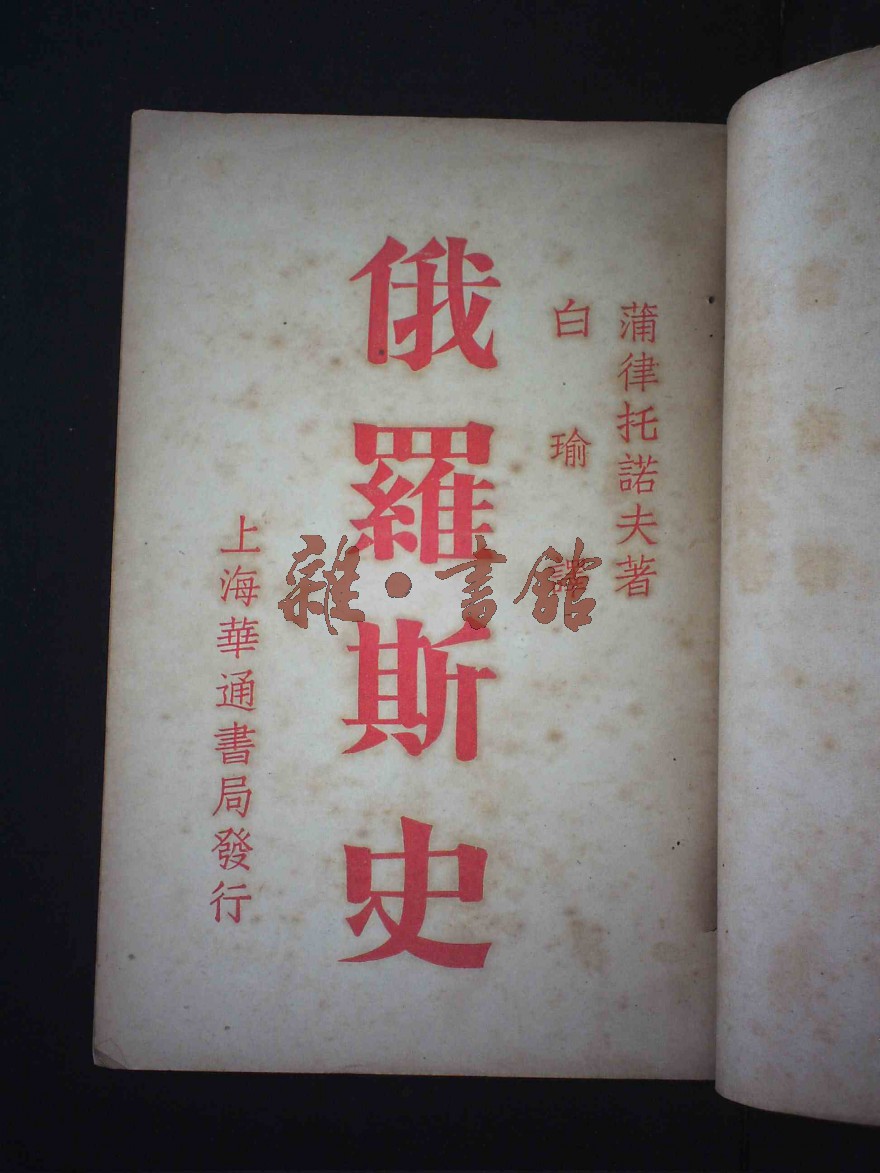 蒲律托諾夫著
白瑜譯
俄羅斯史
上海華通書局發行
雜·書館